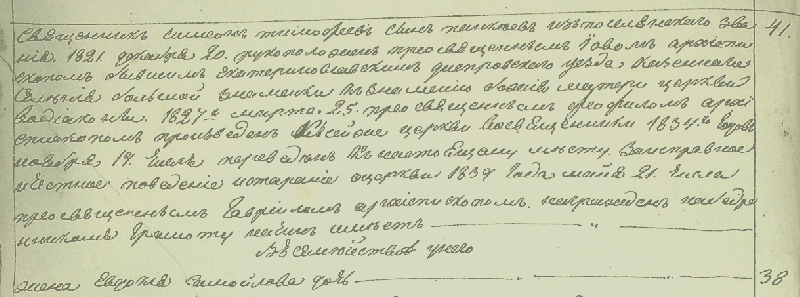 Священникъ Симеонъ Тимофеевъ сынъ изъ поселянскаго зва- 41.
нія 1821 декабря 20. рукоположенъ преосвященнымъ Іовомъ архіепи
скопомъ бывшимъ Екатеринославскимъ днепровского уезда. Казеннаго
Селенія большой знаменки къ знаменію божіей матери церкви
водіакона. 1827го марта. 25. преосвященнымъ феофиломъ архі
епископомъ произведенъ къ сейже церкви восвященники 1834го Года
ноября 14 числа переведенъ къ настоящему месту. Заисправное
и честное поведеніе истараніе оцеркви 1837 Года маія 21. числа
преосвященнымъ Гавріиломъ архіепископомъ. награжденъ набедре
нникомъ Грамоту начинъ имеетъ — „ —
Въ семействе унего
жена Евдокія Самойлова дочь — „ — 38